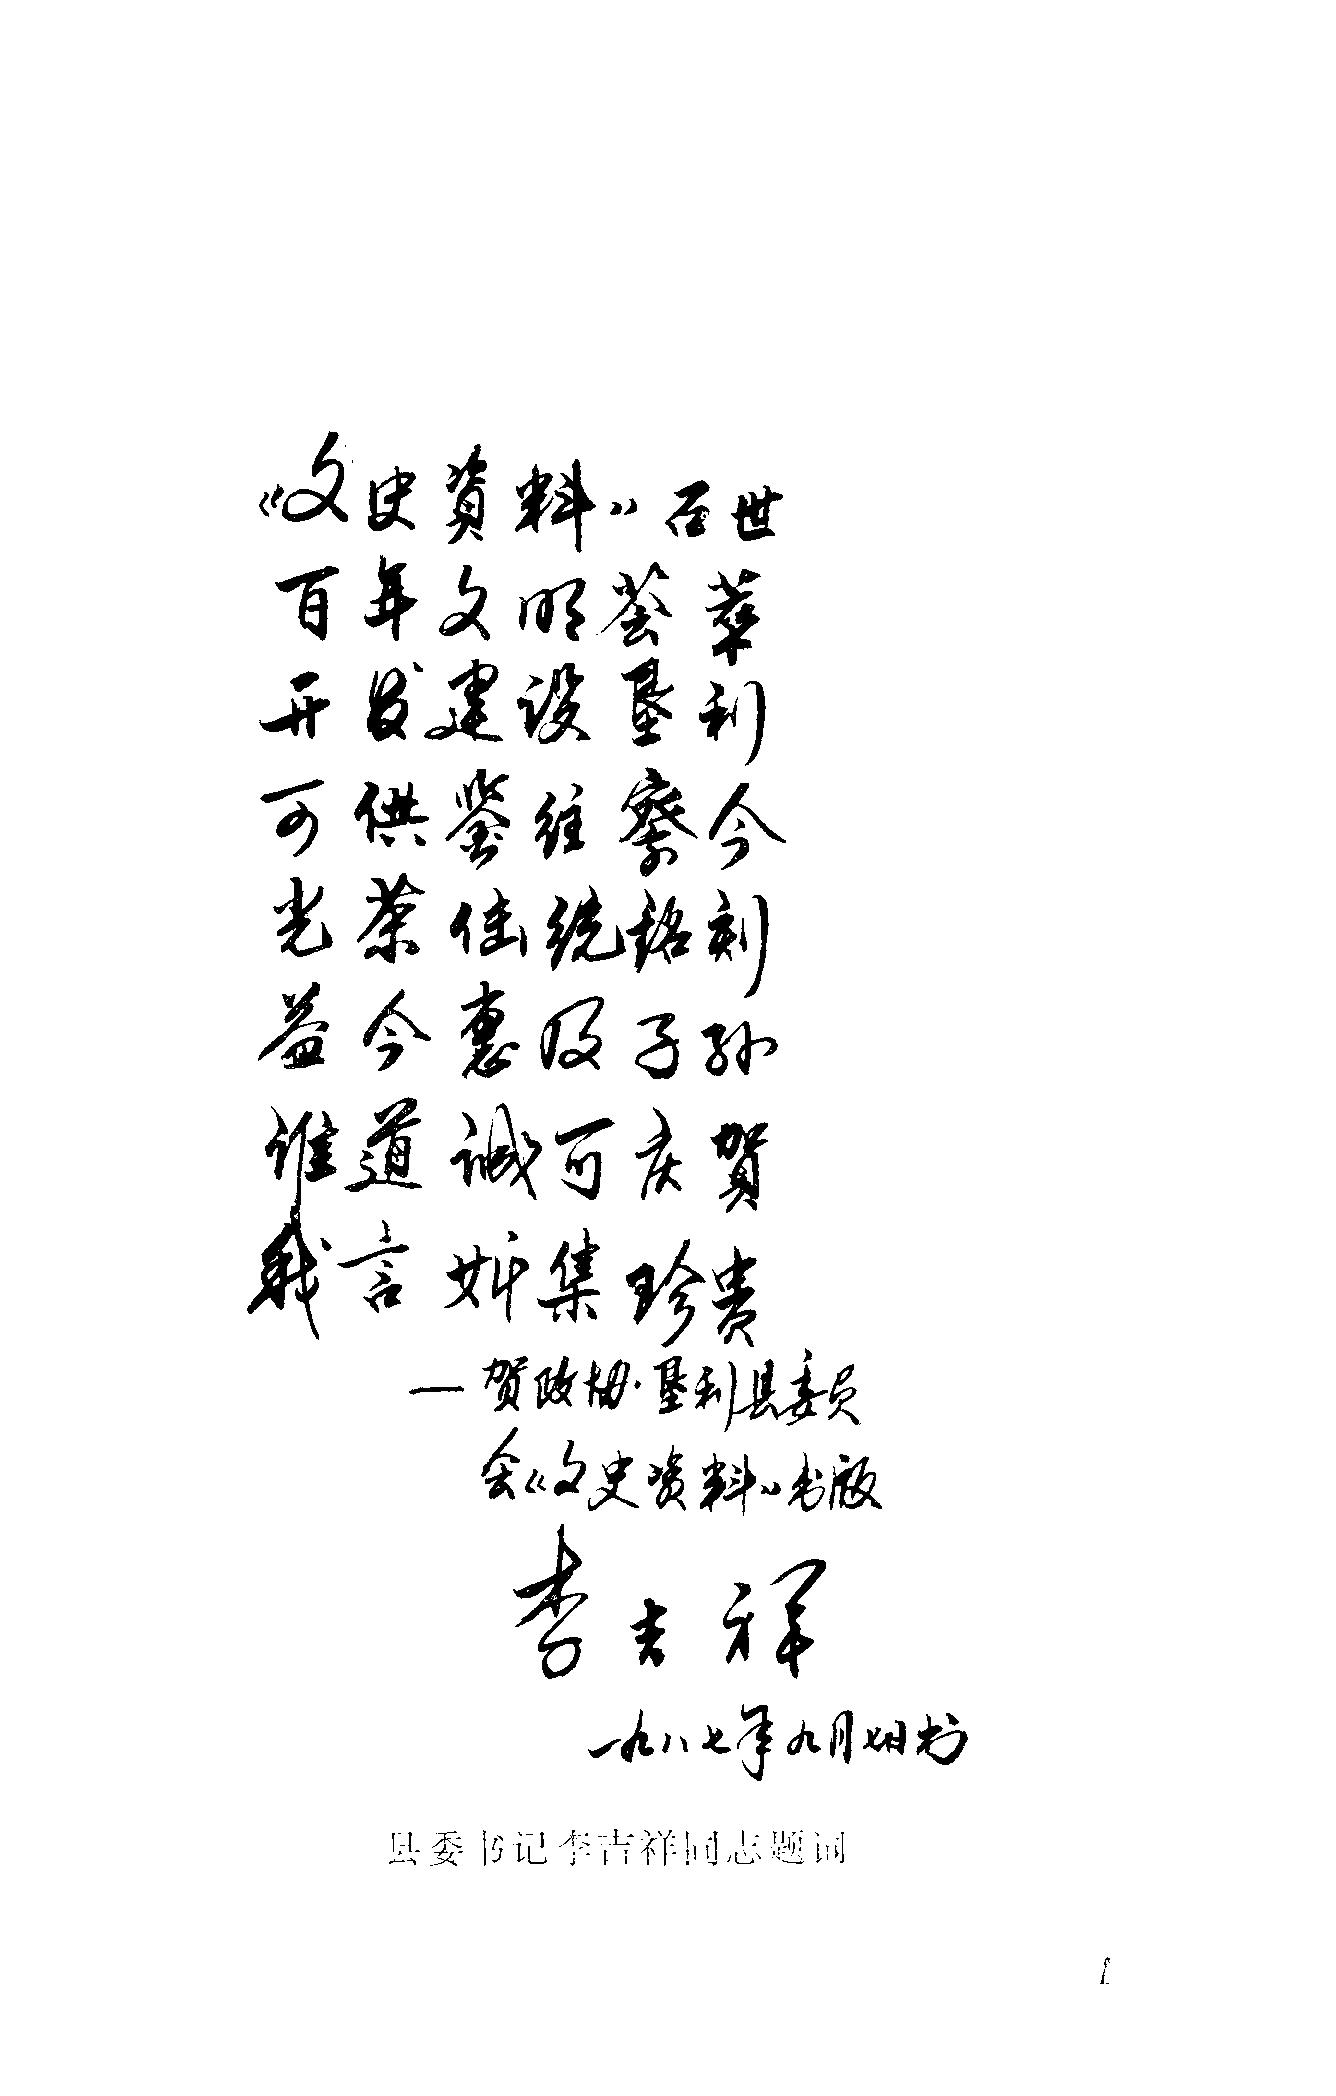 《文史資料》百世
百年文明荟萃
开发建设垦利
可供鉴往察今
光荣传统铭刻
益今惠及子孙
谁道诚可庆贺
我言斯集珍贵
—贺政协·垦利县委员
会《文史资料》书版
李吉祥
一九八七年九月七日书
县委书记李吉祥同志题词
1